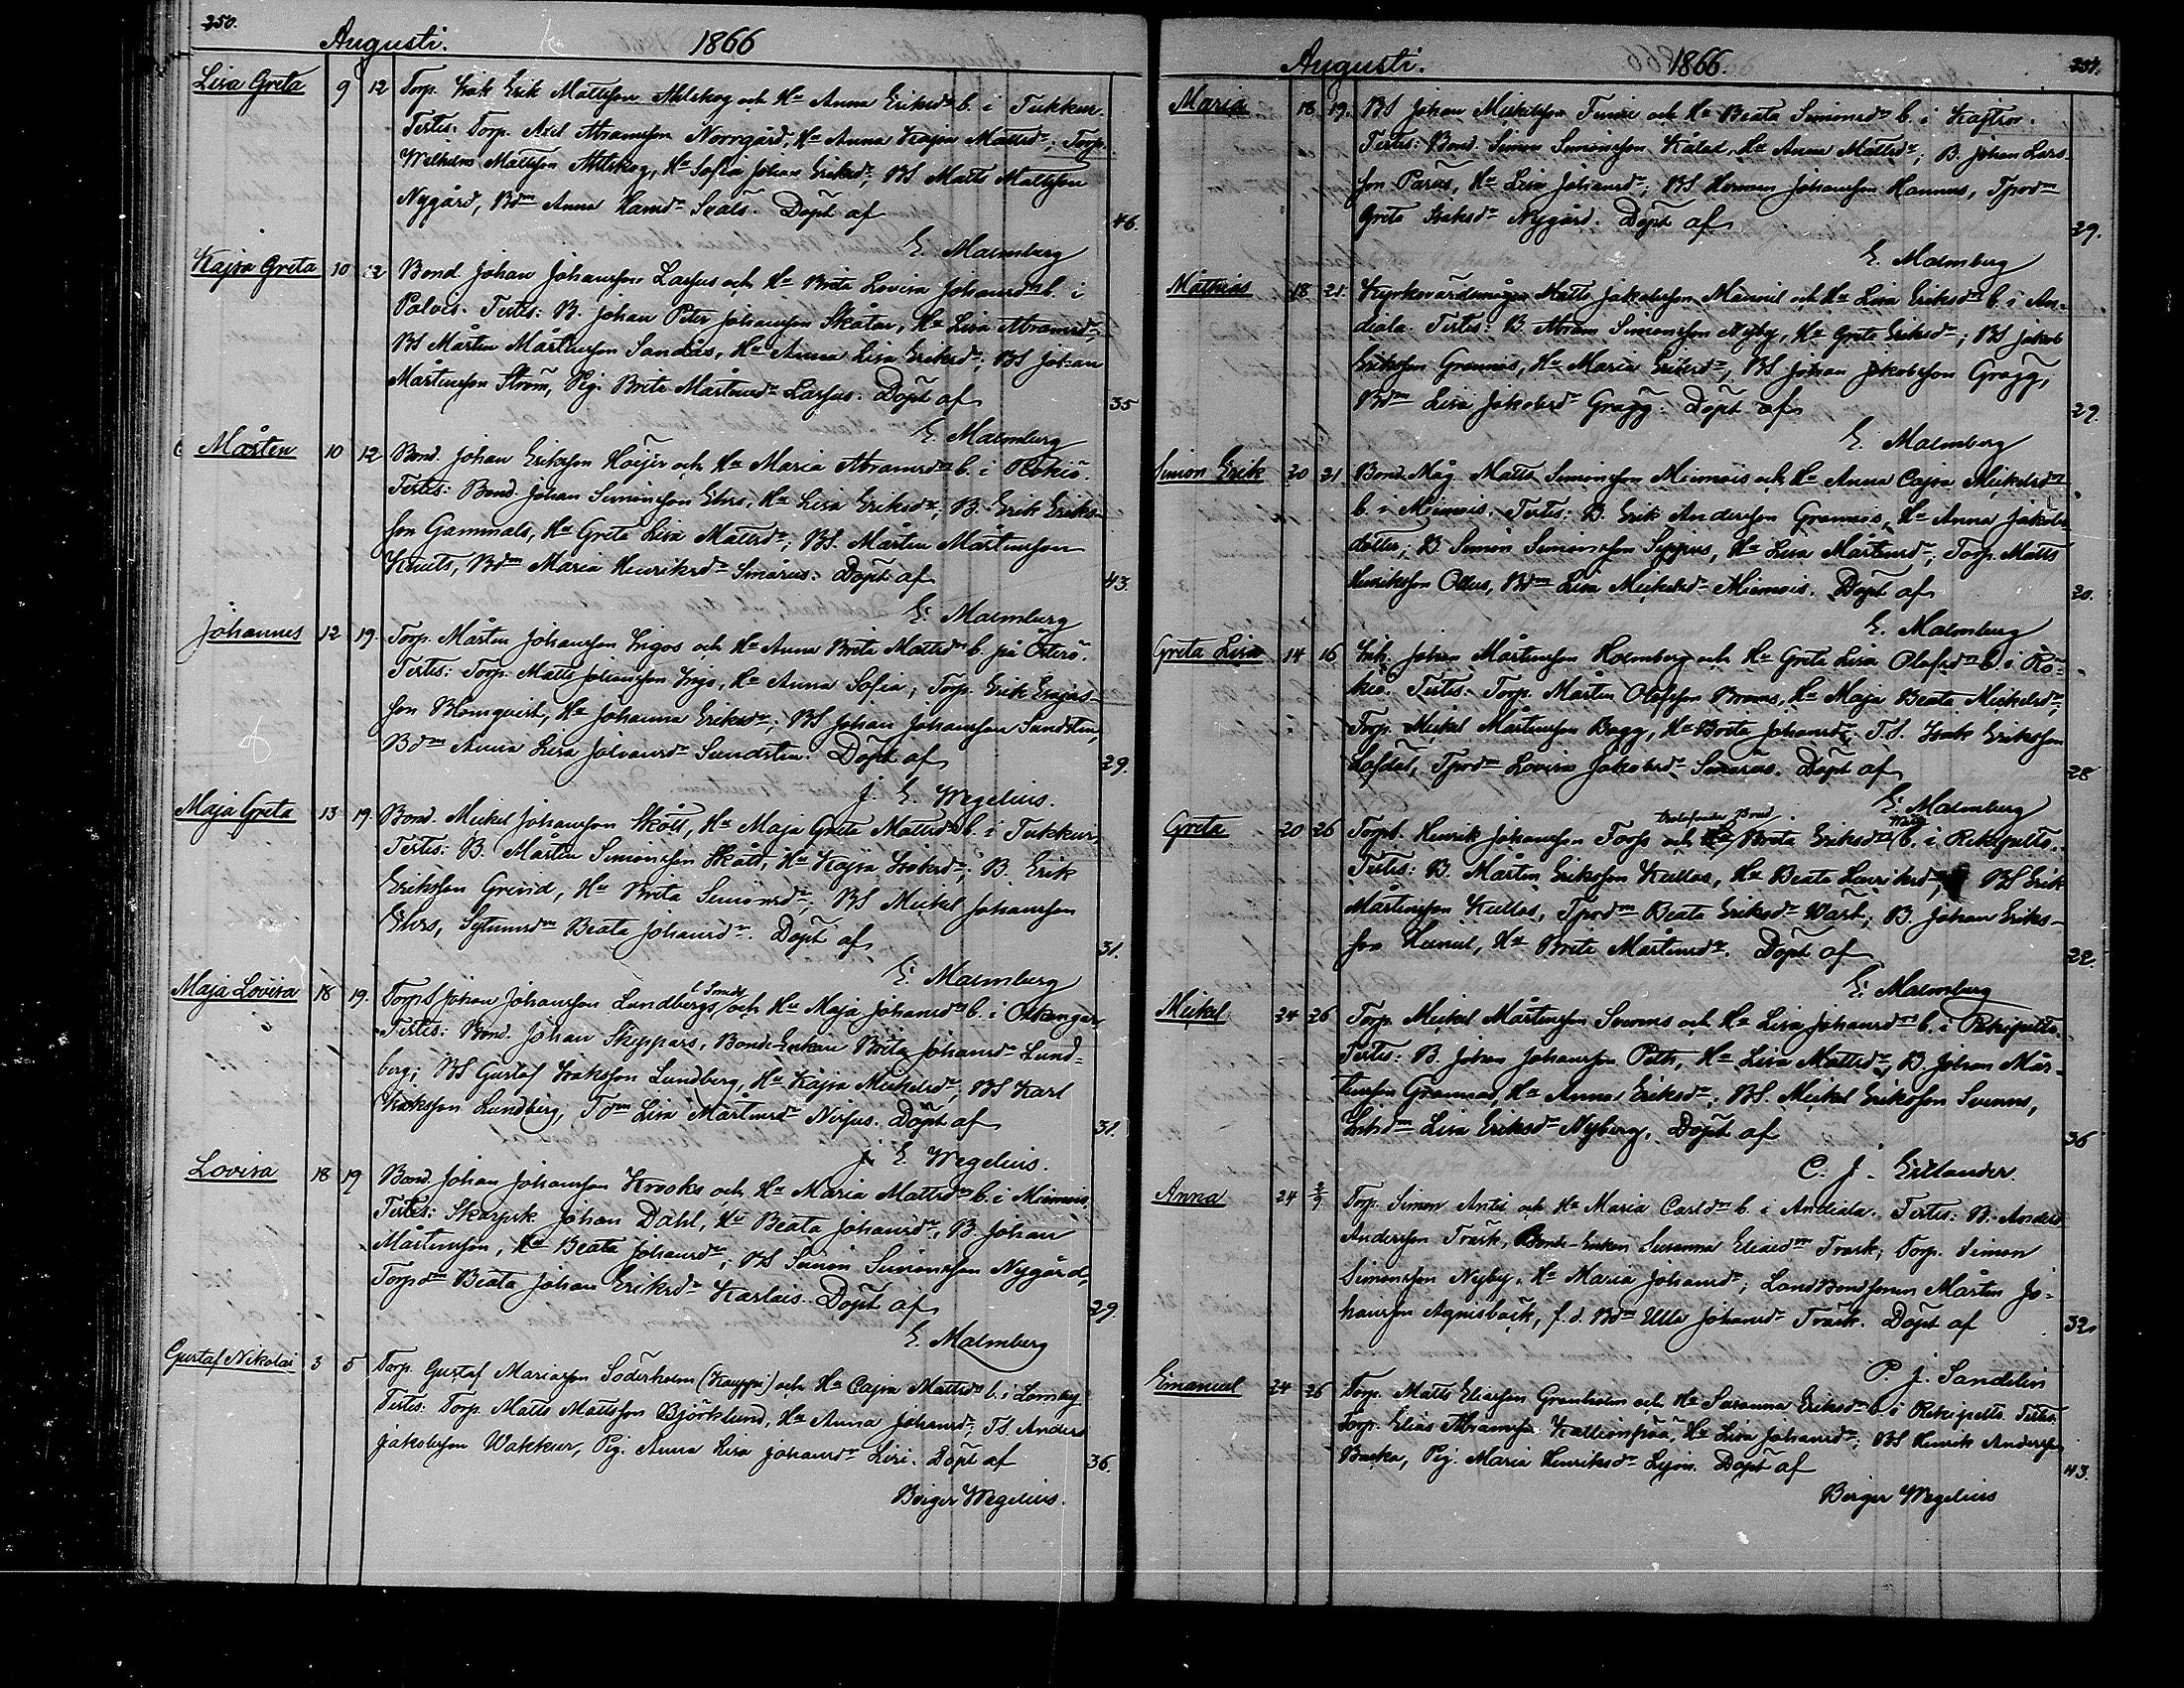 250.
Augusti. 1866
Lisa Greta 9 12 Torp. Isak Erik Mattsson Ahlskog och Hu Anna Eriksdr b. i Tukkur.
Testes: Torp. Axel Abramsson Norrgård, Hu Anna Kajsa Mattsdr; Torp.
Wilhelm Mattsson Ahlskog, Hu Sofia Johan Eriksdr; BS Matts Mattsson
Nygård, Bdm Anna Hansdr Svals. Döpt af 46.
E. Malmberg
Kajsa Greta 10 22 Bond. Johan Johansson Lassus och Hu Brita Lovisa Johansdr b. i
Palvis. Testes: B. Johan Peter Johansson Skatar, Hu Lisa Abramsdr;
BS Mårten Mårtensson Sandås, Hu Anna Lisa Eriksdr; BS Johan
Mårtensson Ström, Pig. Brita Mårtensdr Lassus. Döpt af 35
E. Malmberg
Mårten 10 12 Bond. Johan Eriksson Höijer och Hu Maria Abramsdr b. i Rökiö.
Testes: Bond. Johan Simonsson Ehrs, Hu Lisa Eriksdr; B. Erik Eriks-
son Gammals, Hu Greta Lisa Mattsdr; BS. Mårten Mårtensson
Knuts, Bdm Maria Henriksdr Smårus. Döpt af 43.
E. Malmberg
Johannes 12 19. Torp. Mårten Johansson Ingos och Hu Anna Brita Mattsdr b. på Österö.
Testes: Torp. Matts Johansson Ingo, Hu Anna Sofia; Torp. Erik Esajas-
son Blomqvist, Hu Johanna Eriksdr; BS Johan Johansson Sundsten,
Bdm Anna Lisa Johansdr Sundsten. Döpt af 29.
J. E. Wegelius.
Maja Greta 13 19 Bond. Mickel Johansson Skått, Hu Maja Greta Mattsdr b. i Tukkur,
Testes: B. Mårten Simonsson Skått, Hu Kajsa Isaksdr; B. Erik
Eriksson Grind, Hu Brita Simonsdr; BS Mickel Johansson
Ehrs, Sytnmsdm Beata Johansdr. Döpt af 31.
E. Malmberg
Maja Lovisa 18 19. TorpS Johan Johansson Lundbergs och Hu Maja Johansdr b. i Oxkangar
Testes: Bond. Johan Skeppars, Bonde-Enkan Brita Johansdr Lund-
berg; BS Gustaf Isaksson Lundberg, Hu Kajsa Mickelsdr; BS Karl
Isaksson Lundberg, Tdm Lisa Mårtensdr Nissus. Döpt af 31.
J. E. Wegelius.
Lovisa 18 19 Bond. Johan Johansson Krooks och Hu Maria Mattsdr b. i Miemois.
Testes: Skarpsk Johan Dahl, Hu Beata Johansdr; B. Johan
Mårtensson, Hu Beata Johansdr; BS Simon Simonsson Nygård,
Torpdm Beata Johan Eriksdr Karlais. Döpt af 29.
E. Malmberg
Gustaf Nikolai 3 5 Torp. Gustaf Mariasson Söderholm (Kauppi) och Hu Cajsa Mattsdr b. i Lomby
Testes: Torp. Matts Mattsson Björklund, Hu Anna Johansdr; TS. Anders
Jakobsson Wakkur, Pig. Anna Lisa Johansdr Liri. Döpt af 36.
Birger Wegelius.
Augusti. 1866. 251.
Maria 18 19. BS Johan Mickelsson Finne och Hu Beata Simonsdr b. i Kaftror.
Testes: Bond. Simon Simonsson Kålax, Hu Anna Mattsdr; B. Johan Lars-
son Parus, Hu Lisa Johansdr; BS Herman Johansson Hannus, Tpsdm
Greta Isaksdr Nygård. Döpt af 29.
E. Malmberg
Mathias 18 21. Kyrkovärdsmågen Matts Jakobsson Männil och Hu Lisa Eriksdr b. i An-
diala. Testes: B. Abram Simonsson Nyby, Hu Greta Eriksdr; BS Jakob
Eriksson Grannas, Hu Maria Eriksdr, BS Johan Jakobsson Grägg,
Bdm Lisa Jakobsdr Grägg. Döpt af 29.
E. Malmberg
Simon Erik 20 21 Bond.Måg Matts Simonsson Miemois och Hu Anna Cajsa Mickelsdr
b. i Miemois. Testes: B. Erik Andersson Grannas, Hu Anna Jakobs
dotter; B. Simon Simonsson Seppus, Hu Lisa Mårtensdr; Torp. Matts
Henriksson Ollus, Bdm Lisa Mickelsdr Miemois. Döpt af 20.
E. Malmberg
Greta Lisa 14 16 Inh. Johan Mårtensson Holmberg och Hu Greta Lisa Olofsdr b. i Rö-
kiö. Testes: Torp. Mårten Olofsson Bronas, Hu Maja Beata Mickelsdr;
Torp. Mickel Mårtensson Bagg, Hu Brita Johansdr; T.S. Isak Eriksson
Lofdal, Tpsdm Lovisa Jakobsdr Smårus. Döpt af 28
E. Malmberg
Greta 20 26 Torpb. Henrik Johansson Forss och Brita Eriksdr b. i Rekipelto.
Testes: B. Mårten Eriksson Kullas, Hu Beata Henriksdr; BS Erik
Mårtensson Kullas, Tpsdm Beata Eriksdr Wart; B. Johan Eriks-
son Heinil, Hu Brita Mårtensdr. Döpt af 22.
E. Malmberg
Mickel 24 26 Torp. Mickel Mårtensson Svenns och Hu Lisa Johansdr b. i Rekipelto.
Testes: B. Johan Johansson Peth, Hu Lisa Mattsdr; B. Johan Mår-
tensson Grannas, Hu Anna Eriksdr; BS. Mickel Eriksson Svenns,
Inhdm Lisa Eriksdr Nyberg. Döpt af 36
C. J. Estlander.
Anna 24 2/9 Torp. Simon Antil och Hu Maria Carlsdr b. i Andiala. Testes: B. Anders
Andersson Trask, Bonde-Enkan Susanna Eliaedm Trask; Torp. Simon
Simonsson Nyby, Hu Maria Johansdr; LandBondsonen Mårten Jo-
hansson Agnisbäck, f.d. Bdm Ulla Johansdr Träsk. Döpt af 32.
P. J. Sandelin
Emanuel 24 26 Torp. Matts Eliasson Granholm och Hu Susanna Eriksdr b. i Rekipelto. Testes:
Torp. Elias Abramsson Kallionpää, Hu Lisa Johansdr; BS Henrik Andersson
Backa, Pig. Maria Henriksdr Lyon. Döpt af 43.
Birger Wegelius